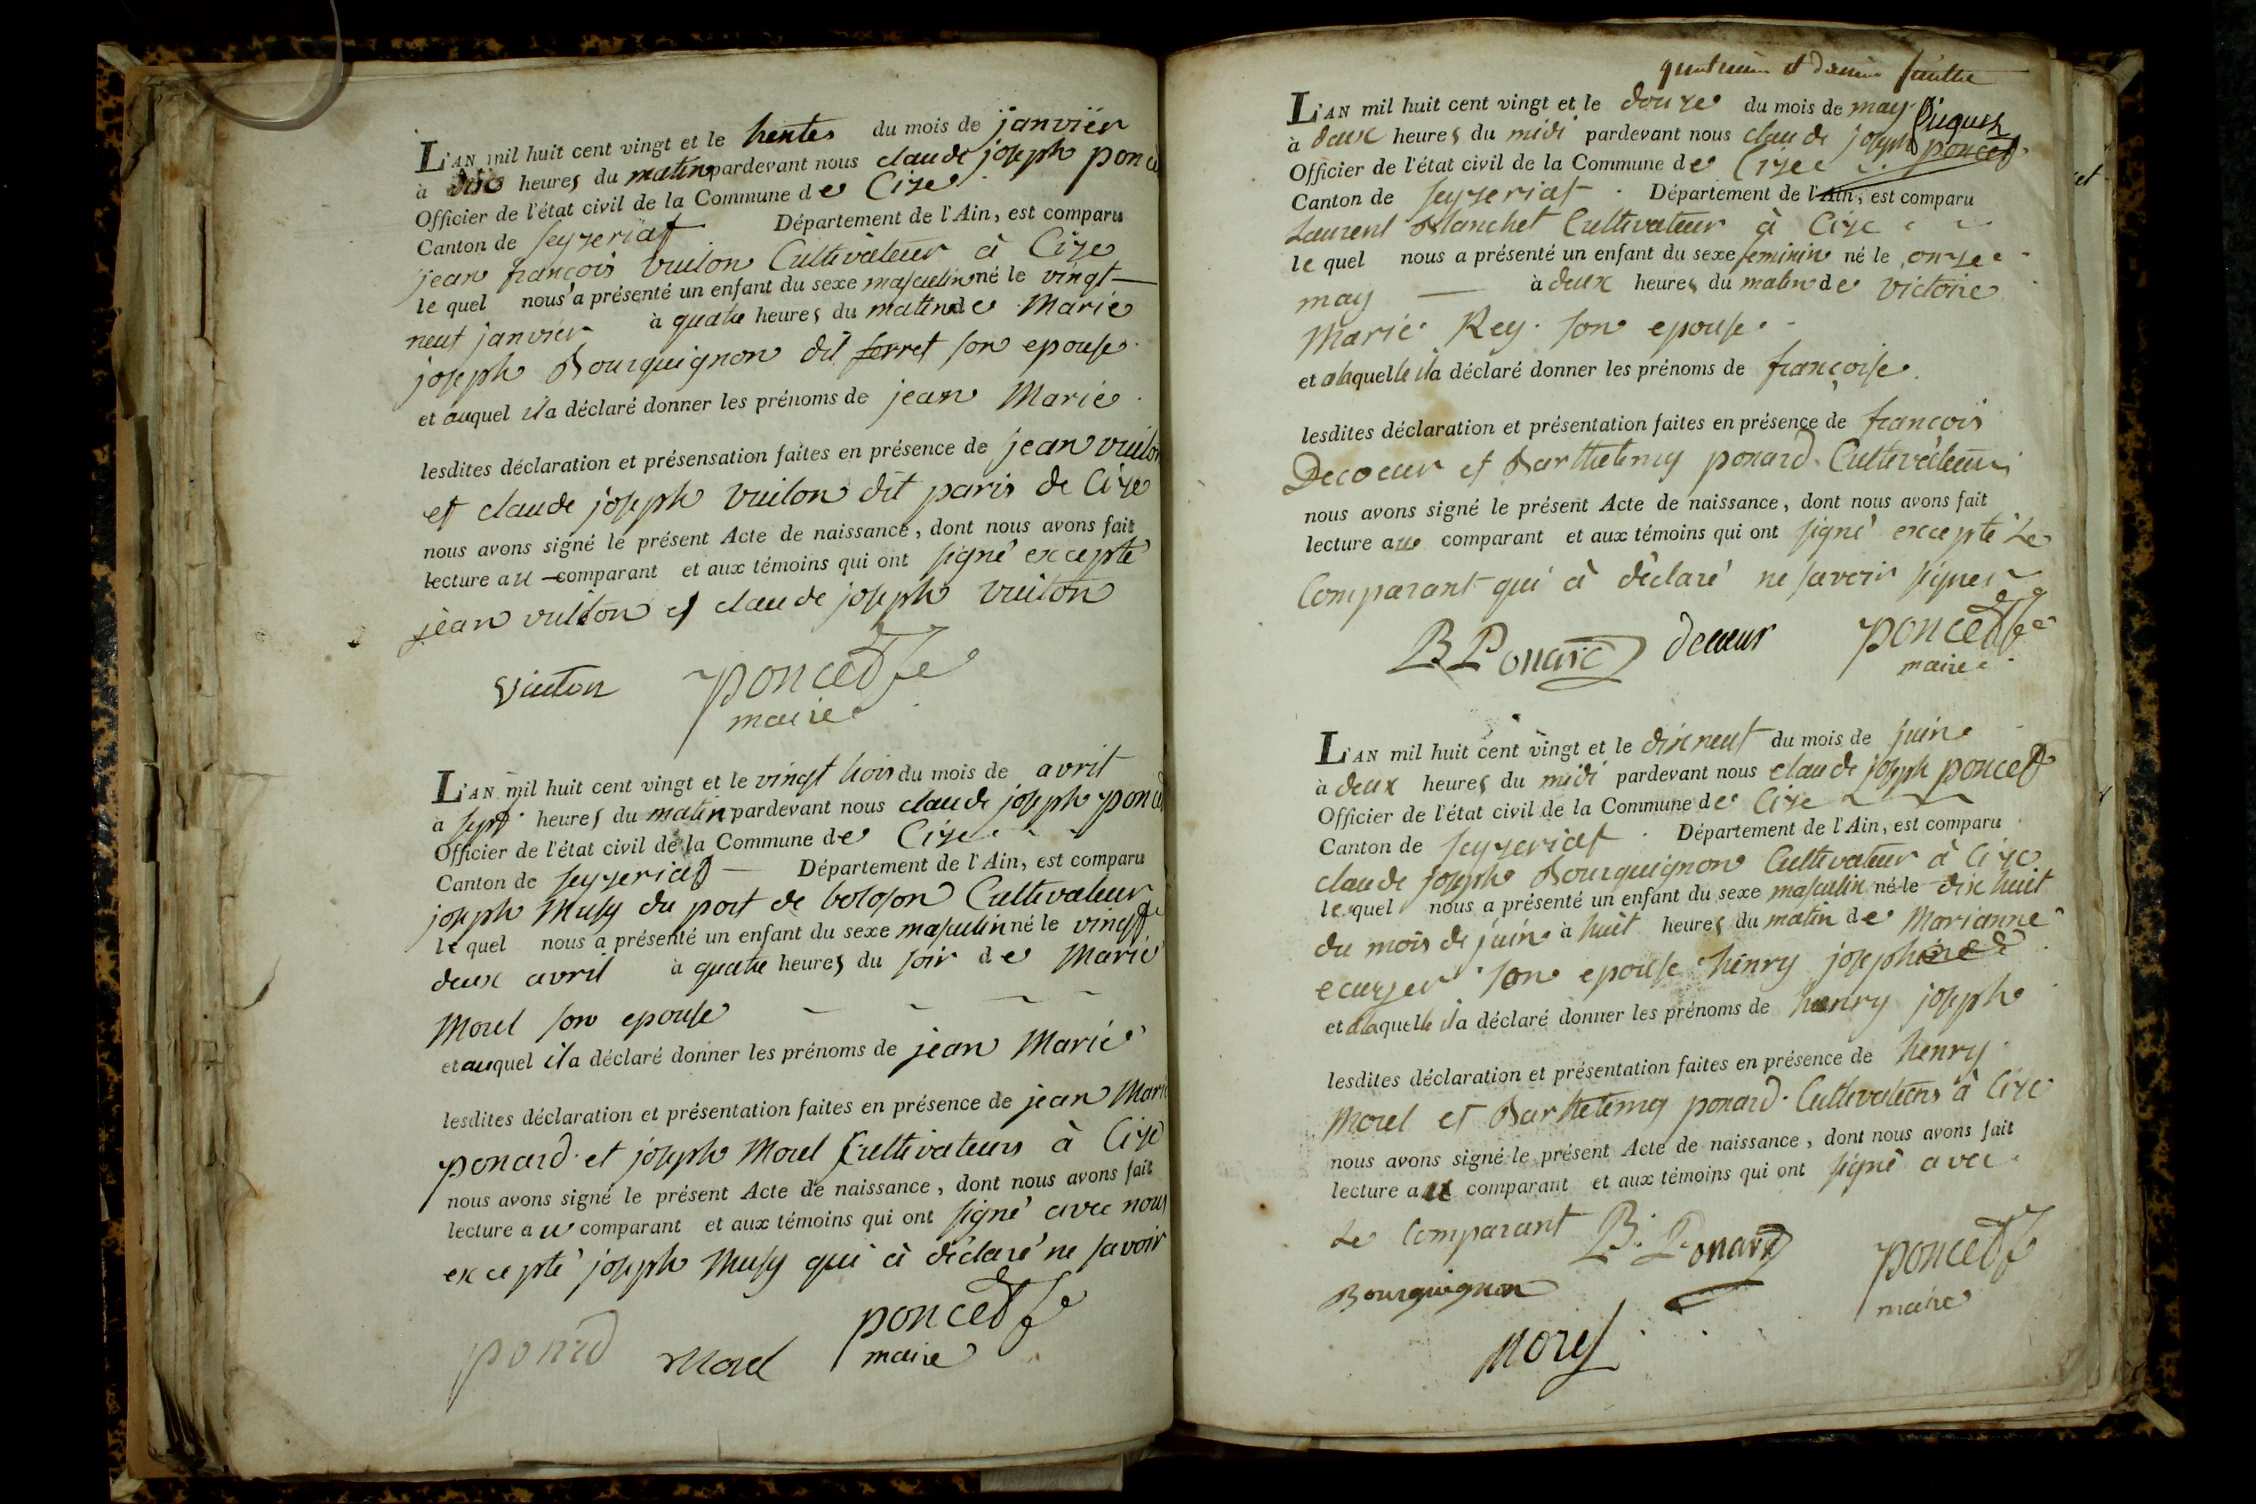 L'AN mil huit cent vingt et le trentes du mois de janvier
à dix heures du matin pardevant nous claude joseph ponce
Officier de l'état civil de la Commune de Cize
Canton de seyzeriat Département de l'Ain, est comparu
jean françois vuilon Cultivateur à Cize
le quel nous a présenté un enfant du sexe masculin né le vingt
neuf janvier à quatre heures du matin de Marie
joseph Bourguignon dit ferret son epouse
et auquel il a déclaré donner les prénoms de jean Marie
lesdites déclaration et présensation faites en présence de jean vuilon
et claude joseph vuilon dit paris de Cize
nous avons signé le présent Acte de naissance, dont nous avons fait
lecture au comparant et aux témoins qui ont signé excepté
jean vuilon et claude joseph vuilon
poncet
maire
L'AN mil huit cent vingt et le vingt trois du mois de avril
à sept heures du matin pardevant nous claude joseph ponce
Officier de l'état civil de la Commune de Cize
Canton de seyzeriat Département de l'Ain, est comparu
joseph Musy du port de boloson Cultivateur
le quel nous a présenté un enfant du sexe masculin né le vingt
deux avril à quatre heures du soir de Marie
Morel son epouse
et auquel il a déclaré donner les prénoms de jean Marie
lesdites déclaration et présentation faites en présence de jean Marie
ponard et joseph Morel Cultivateurs à Cize
nous avons signé le présent Acte de naissance, dont nous avons fait
lecture au comparant et aux témoins qui ont signé avec nous
excepté joseph Musy qui à déclaré ne savoir
ponard Morel poncet
maire
L'AN mil huit cent vingt et le douze du mois de may
à deux heures du midi pardevant nous claude joseph poncet
Officier de l'état civil de la Commune de Cize
Canton de seyzeriat Département de l'Ain, est comparu
Laurent Blanchet Cultivateur à Cize
le quel nous a présenté un enfant du sexe feminin né le onze
may à deux heures du matin de victoire
Marie Rey son epouse
et alaquelle il a déclaré donner les prénoms de françoise
lesdites déclaration et présentation faites en présence de françois
Decoeur et Barthelemy ponard Cultivateurs
nous avons signé le présent Acte de naissance, dont nous avons fait
lecture au comparant et aux témoins qui ont signé excepté Le
Comparant qui à déclaré ne savoir signer
B Ponard decœur poncet
maire
L'AN mil huit cent vingt et le dix neuf du mois de juin
à deux heures du midi pardevant nous claude joseph poncet
Officier de l'état civil de la Commune de Cize
Canton de seyzeriat Département de l'Ain, est comparu
claude joseph Bourguignon Cultivateur à Cize
le quel nous a présenté un enfant du sexe masculin né le dix huit
du mois de juin à huit heures du matin de Marianne
ecuyer son epouse henry josephine
et alaquelle il a déclaré donner les prénoms de henry joseph
lesdites déclaration et présentation faites en présence de henry
Morel et Barthelemy ponard Cultivateurs à Cize
nous avons signé le présent Acte de naissance, dont nous avons fait
lecture au comparant et aux témoins qui ont signé avec
Le Comparant B. Ponard poncet
Bourguignon maire
Morel